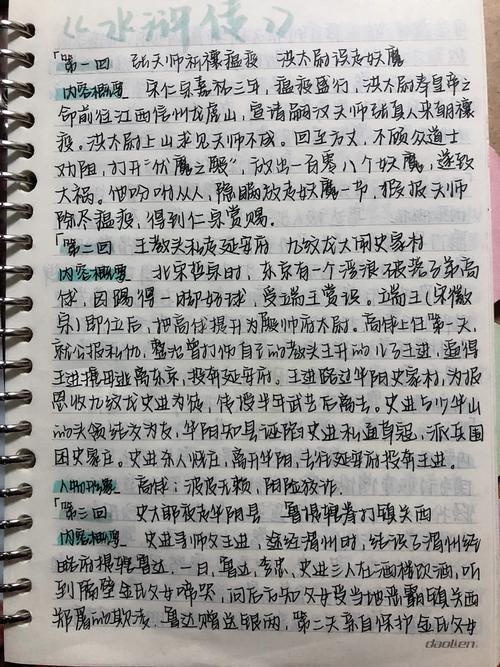 《水浒传》
「第一回 张天师祈禳瘟疫 洪太尉误走妖魔
内容概要 宋仁宗嘉祐三年，瘟疫盛行，洪太尉奉皇帝之
命前往江西信州龙虎山，宣请嗣汉天师张真人来朝禳
疫。洪太尉上山求见天师不成。回至方丈，不顾众道士
劝阻，打开"伏魔之殿"，放出一百零八个妖魔，遂致
大祸。他吩咐从人，隐瞒放走妖魔一节，假报天师
除尽瘟疫，得到仁宗赏赐。
「第二回 王教头私走延安府 九纹龙大闹史家村
内容概要 北宋哲宗时，东京有一个浮浪破落子弟高
俅，因踢得一脚好球，受端王赏识。端王（宋徽
宗）即位后，把高俅提升为殿帅府太尉。高俅上任第一天，
就公报私仇，整治曾打伤自己的教头王升的儿子王进，逼得
王进携母逃离东京，投奔延安府。王进路过华阴史家村，为报
恩收九纹龙史进为徒，传授半年武艺后离去。史进与少华山
的头领结友为友，华阴知县诬陷史进私通草寇，派兵围
困史家庄。史进杀人烧庄，离开华阴，去往延安府投奔王进。
人物形象 高俅：泼皮无赖，阴险狡诈。
「第三回 史大郎夜走华阴县 鲁提辖拳打镇关西
内容概要 史进寻师父王进，途经渭州时，结识了渭州经
略府提辖鲁达。一日，鲁达，李忠，史进三人在酒楼饮酒，听
到隔壁金氏父女啼哭，问后方知父女受当地恶霸镇关西
郑屠的欺凌。鲁达赠送银两，第二天亲自保护金氏父女
daolien.